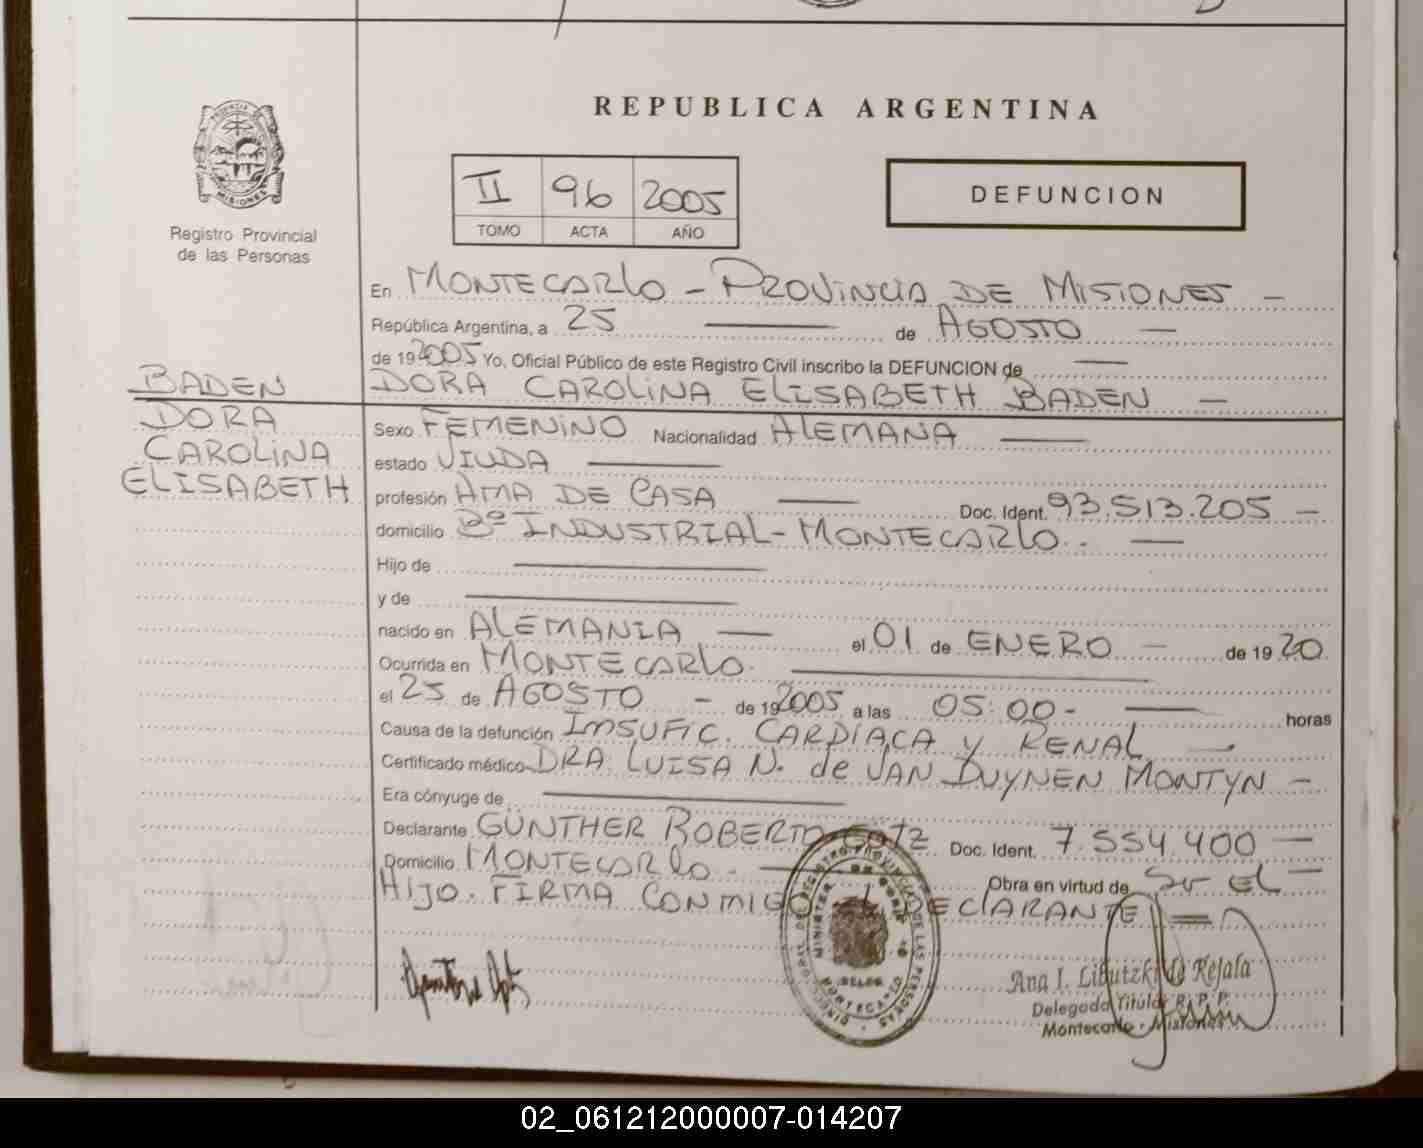 REPUBLICA ARGENTINA
PROVINCIA DE
MISIONES
II 96 2005
TOMO ACTA AÑO
DEFUNCION
Registro Provincial
de las Personas
En MONTECARLO - PROVINCIA DE MISIONES -
República Argentina, a 25 de AGOSTO
de 19 2005 Yo, Oficial Público de este Registro Civil inscribo la DEFUNCION de
DORA CAROLINA ELISABETH BADEN -
BADEN
DORA
CAROLINA
ELISABETH
Sexo FEMENINO Nacionalidad ALEMANA
estado VIUDA
profesión AMA DE CASA Doc. Ident. 93.513.205 -
domicilio Bº INDUSTRIAL - MONTECARLO. -
Hijo de
y de
nacido en ALEMANIA el 01 de ENERO - de 19 20
Ocurrida en MONTECARLO.
el 25 de AGOSTO - de 19 2005 a las 05:00 - horas
Causa de la defunción INSUFIC. CARDIACA Y RENAL
Certificado médico DRA. LUISA N. de VAN DUYNEN MONTYN -
Era cónyuge de
Declarante GUNTHER ROBERTO GOTZ Doc. Ident. 7.554.400 -
Domicilio MONTECARLO. - Obra en virtud de Ser EL -
HIJO. FIRMA CONMIGO EL DECLARANTE
Ana I. Libutzki de Rejala
Delegada Titular R. P. P.
Montecarlo - Misiones
02_061212000007-014207